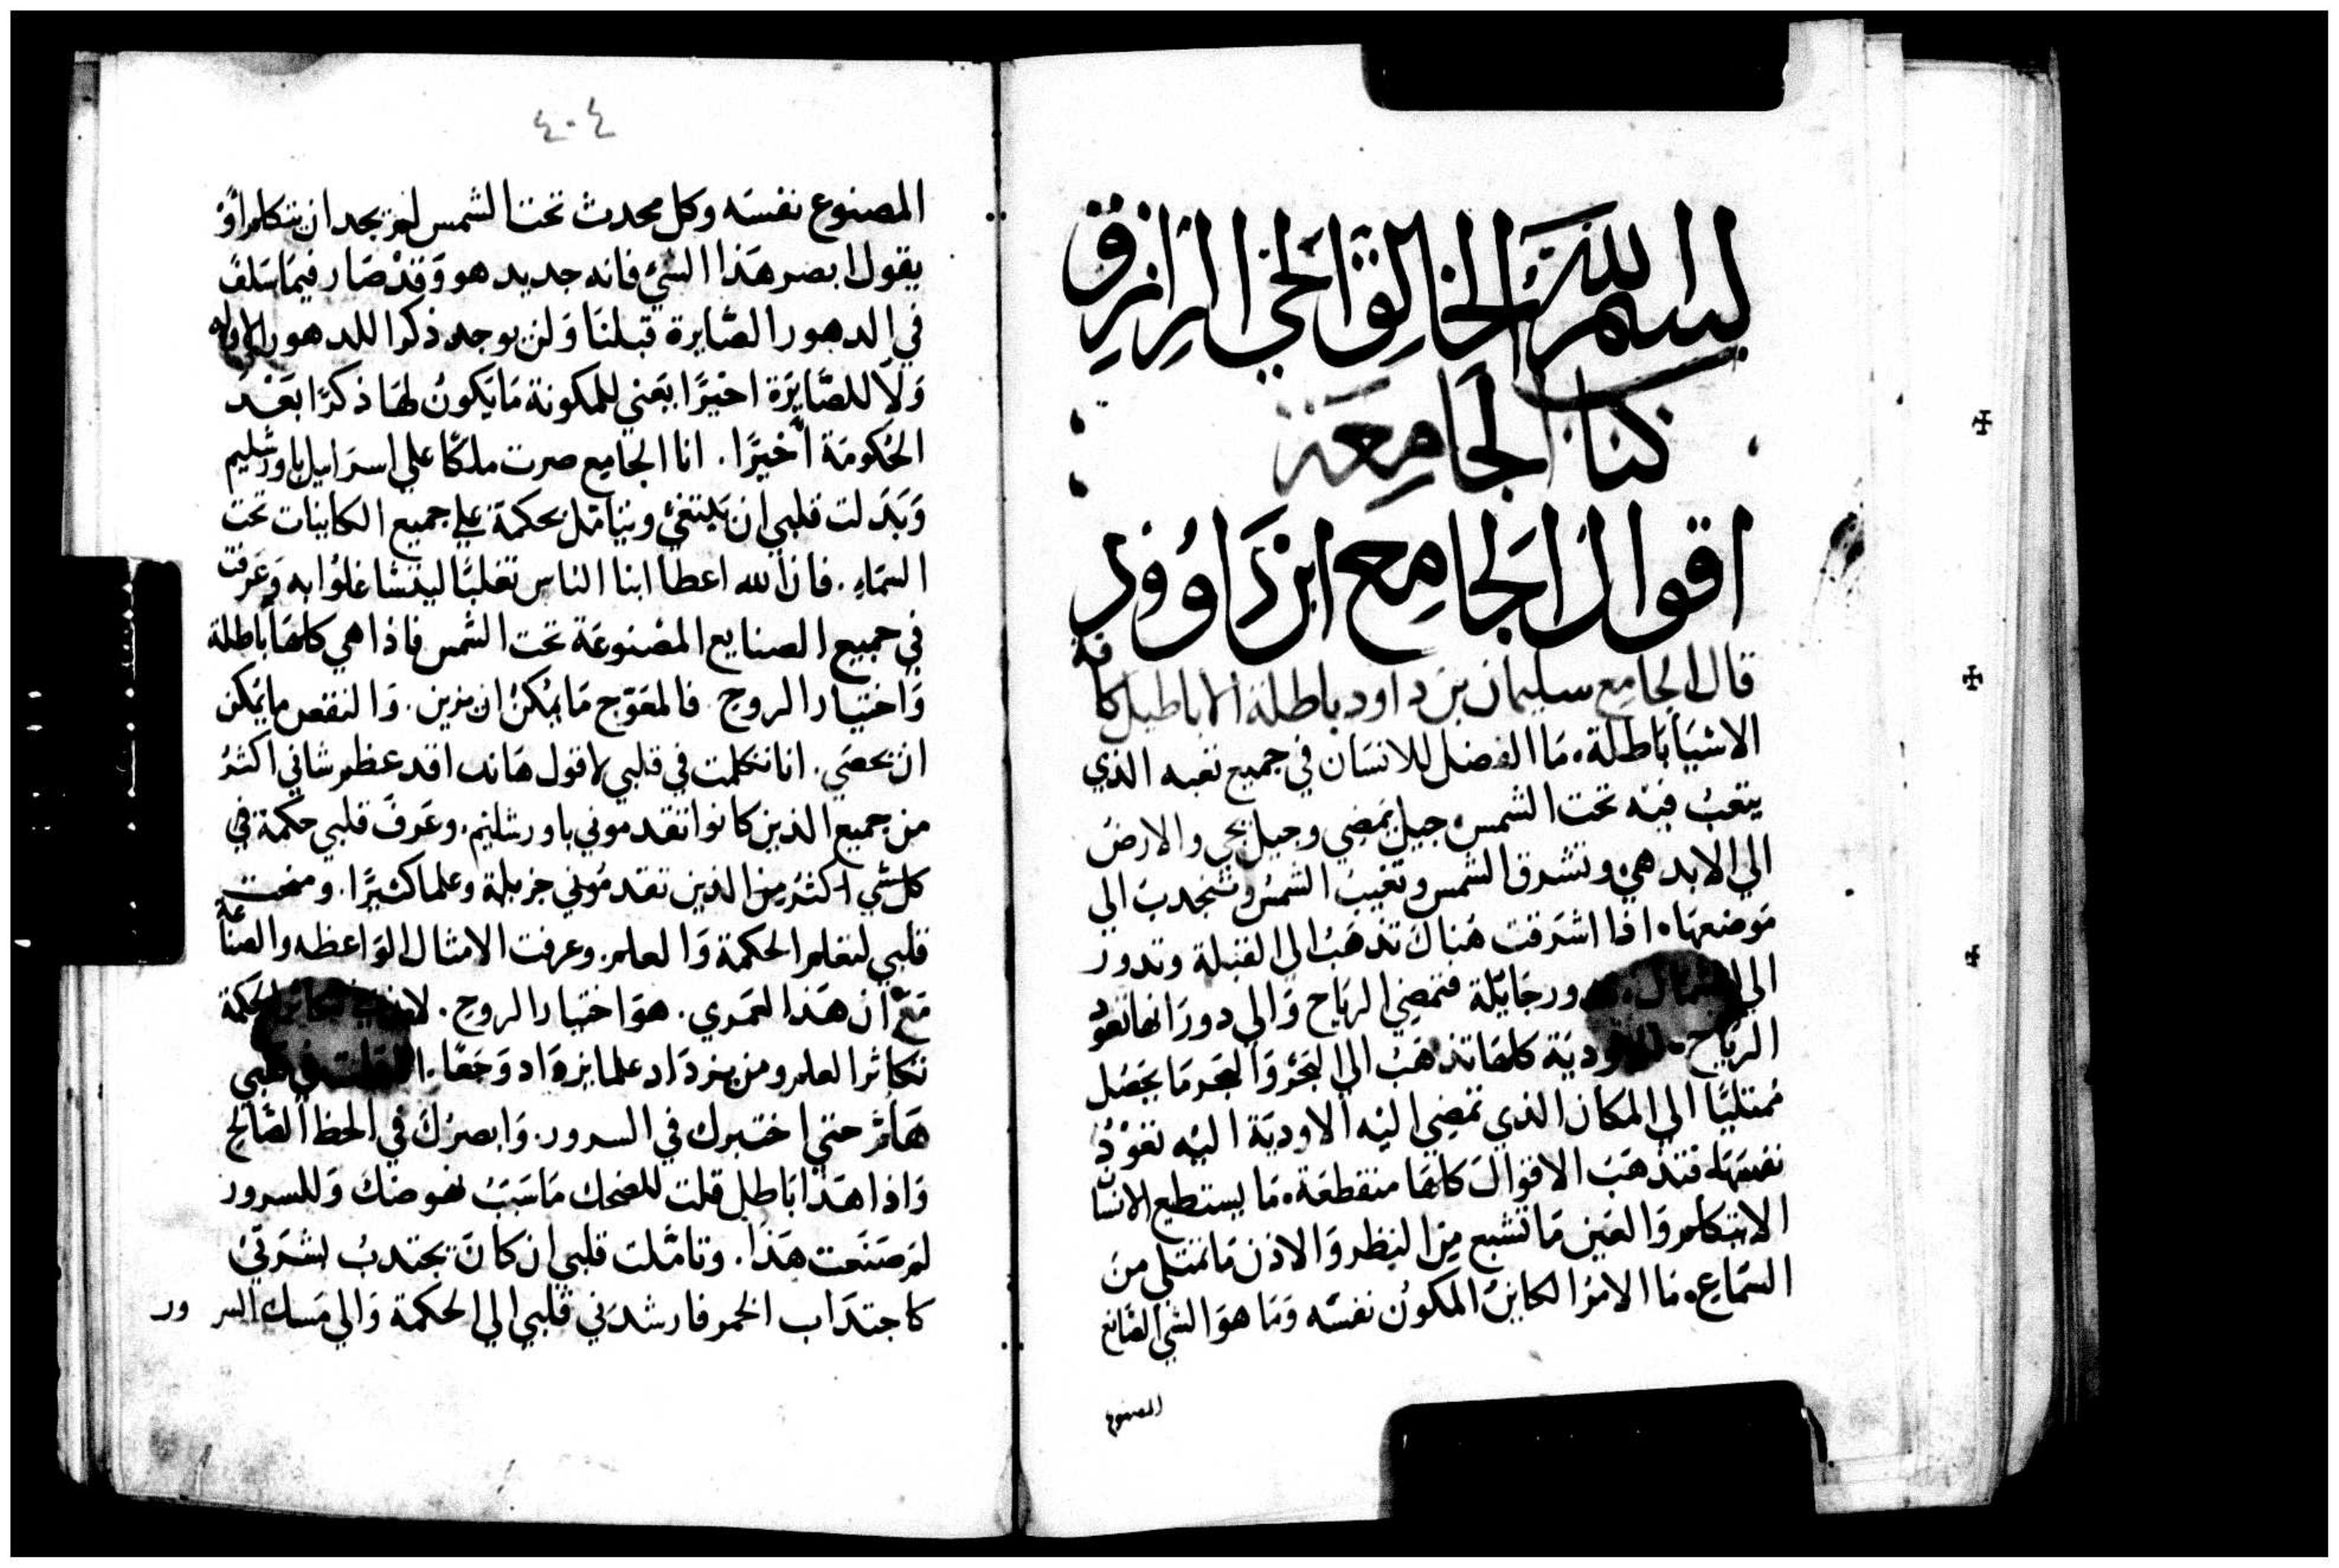 بسم الله الخالق الحي الرازق
كتاب الجامعة
اقوال الجامع ابن داوود
قال الجامع سليمان بن داود باطلة الاباطيل كافة
الاشيا باطلة، ما الفضل للانسان في جميع تعبه الذي
يتعب فيه تحت الشمس، جيل يمضي وجيل يجي والارض
الي الابد هي، وتشرق الشمس وتغيب الشمس وتنجدب الي
موضعها، اذا اشرقت هناك تذهب الي القبلة وتدور
الي الشمال، جايلة فتمضي الرياح والي دورانها تعود
الرياح، الاودية كلها تذهب الي البحر والبحر ما يحصل
ممتليًا الي المكان الذي تمضي اليه الاودية اليه تعود
نفسها، فتذهب الاقوال كلها منقطعة، ما يستطيع الانسان
الا يتكلم والعين ما تشبع من النظر والاذن ما تمتلي من
السماع، ما الامر الكاين المكون نفسه وما هو الشي الصانع
المصنوع
٤٠٤
المصنوع نفسه وكل محدث تحت الشمس لم يجد ان يتكلم او
يقول ابصر هذا الشي فانه جديد هو وقد صار فيما سلف
في الدهور الصايرة قبلنا ولن يوجد ذكرا للدهور الاوله
ولا للصايرة اخيرًا يعني للمكونة ما يكون لها ذكرًا بعد
الحكومة اخيرًا. انا الجامع صرت ملكًا علي اسراييل باورشليم
وبدلت قلبي ان يبتغي ويتامل بحكمة علي جميع الكاينات تحت
السماء. فان الله اعطا ابنا الناس تغلبًا ليتشاغلوا به وعرفت
في جميع الصنايع المصنوعة تحت الشمس فاذا هي كلها باطلة
واختيار الروح. فالمعوّج ما يمكن ان يزين. والنقص ما يمكن
ان يحصي. انا تكلمت في قلبي لاقول هاندا قد عظم شاني اكثر
من جميع الذين كانوا تقدموني باورشليم. وعرف قلبي حكمة في
كل شي اكثر من الذين تقدموني جزيلة وعلما كثيرًا. ومنحت
قلبي لتعلم الحكمة والعلم. وعرفت الامثال الواعظه والصناعة
مع ان هذا لعمري. هو اختيار الروح. تكاثر الحكمة
تكاثر العلم ومن يزداد علما يزداد وجعًا. في قلبي
هلم حتي اختبرك في السرور. وابصرك في الحظ الصالح
واذا هذا باطل قلت للضحك ما سبب نهوضك وللسرور
لم صنعت هذا. وتاملت قلبي ان كان يجتدب بشرتي
كاجتداب الخمر فارشدني قلبي الي الحكمة والي مسك السرور